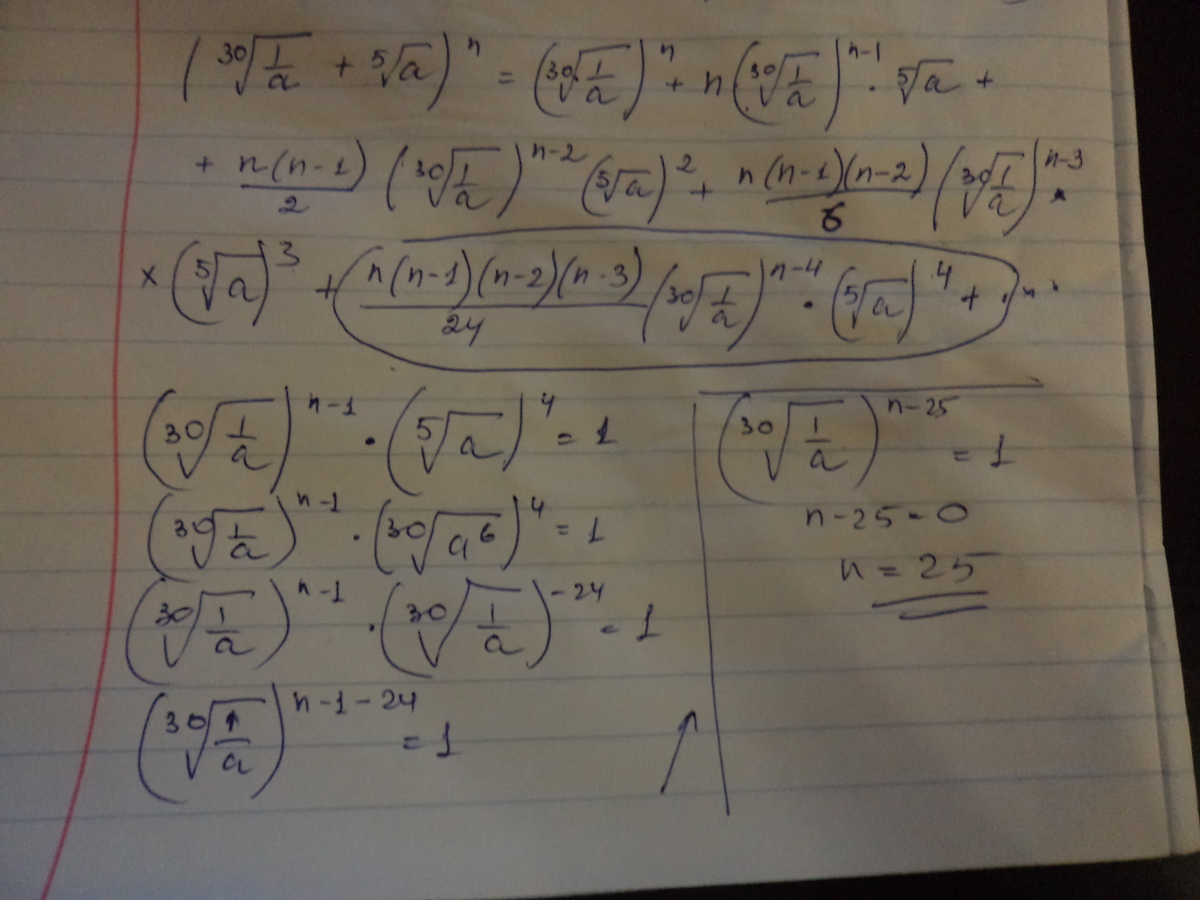 (³⁰√(1/a) + ⁵√a)ⁿ = (³⁰√(1/a))ⁿ + n(³⁰√(1/a))ⁿ⁻¹ · ⁵√a +
+ n(n-1)/2 (³⁰√(1/a))ⁿ⁻² (⁵√a)² + n(n-1)(n-2)/6 (³⁰√(1/a))ⁿ⁻³ ×
× (⁵√a)³ + n(n-1)(n-2)(n-3)/24 (³⁰√(1/a))ⁿ⁻⁴ · (⁵√a)⁴ + ...
(³⁰√(1/a))ⁿ⁻¹ · (⁵√a)⁴ = 1
(³⁰√(1/a))ⁿ⁻¹ · (³⁰√a⁶)⁴ = 1
(³⁰√(1/a))ⁿ⁻¹ · (³⁰√(1/a))⁻²⁴ = 1
(³⁰√(1/a))ⁿ⁻¹⁻²⁴ = 1
(³⁰√(1/a))ⁿ⁻²⁵ = 1
n-25=0
n=25